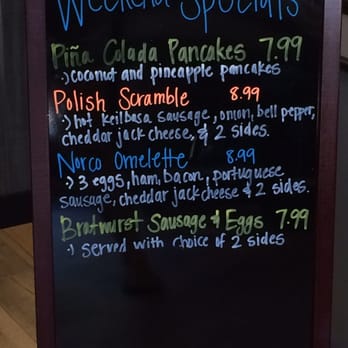 Weekend Specials
Piña Colada Pancakes 7.99
·) coconut and pineapple pancakes
Polish Scramble 8.99
·) hot keilbasa sausage, onion, bell pepper,
cheddar jack cheese, & 2 sides.
Norco Omelette 8.99
·) 3 eggs, ham, bacon, portuguese
sausage, cheddar jack cheese & 2 sides.
Bratwurst Sausage & Eggs 7.99
·) served with choice of 2 sides